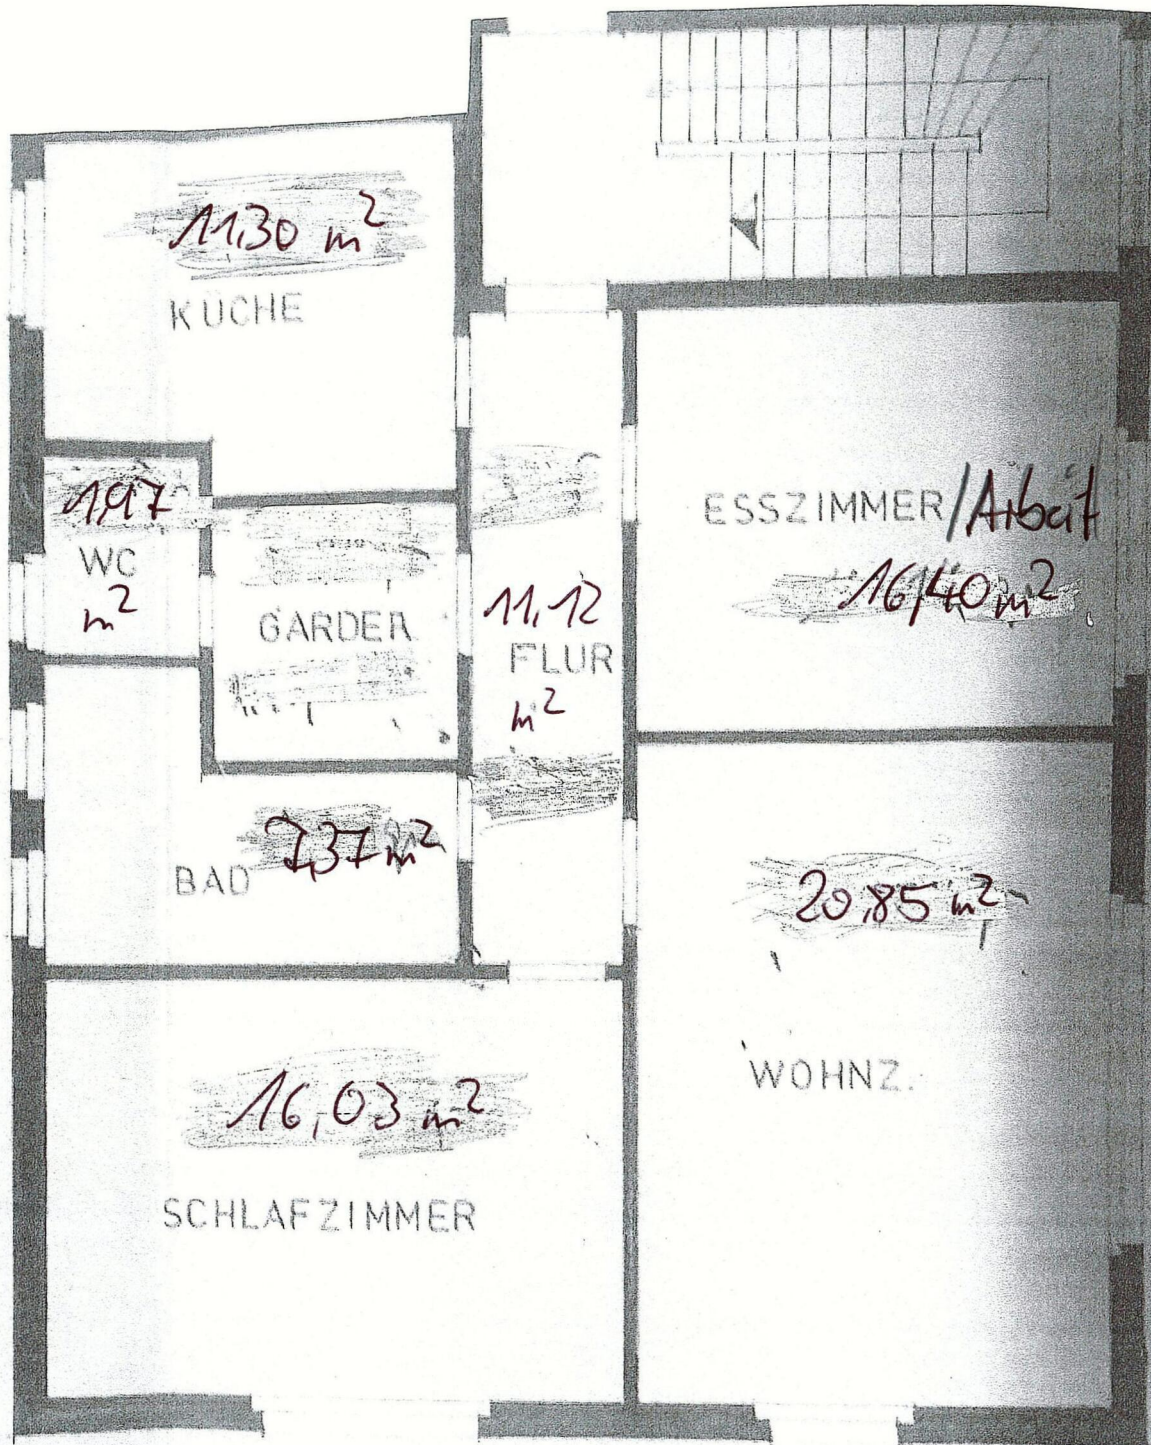 11,30 m²
KÜCHE
1,97
WC
m²
GARDER.
11,12
FLUR
m²
ESSZIMMER/Arbeit
16,40 m²
BAD 7,37 m²
20,85 m²
WOHNZ.
16,03 m²
SCHLAFZIMMER